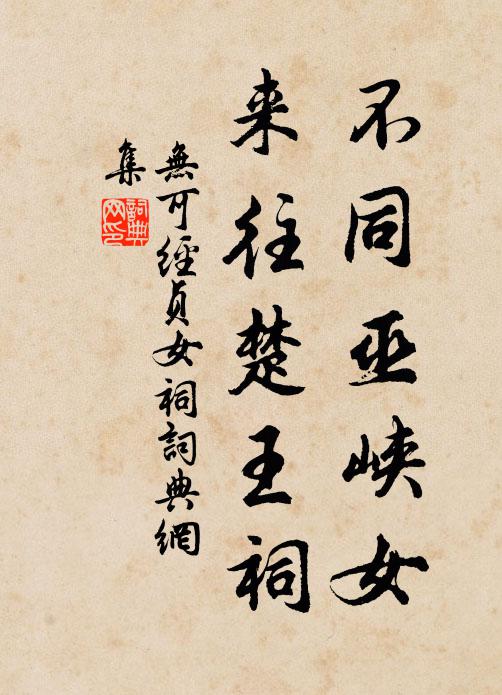 不同巫峡女
来往楚王祠
無可經貞女祠詞典網
集
詞典
网印